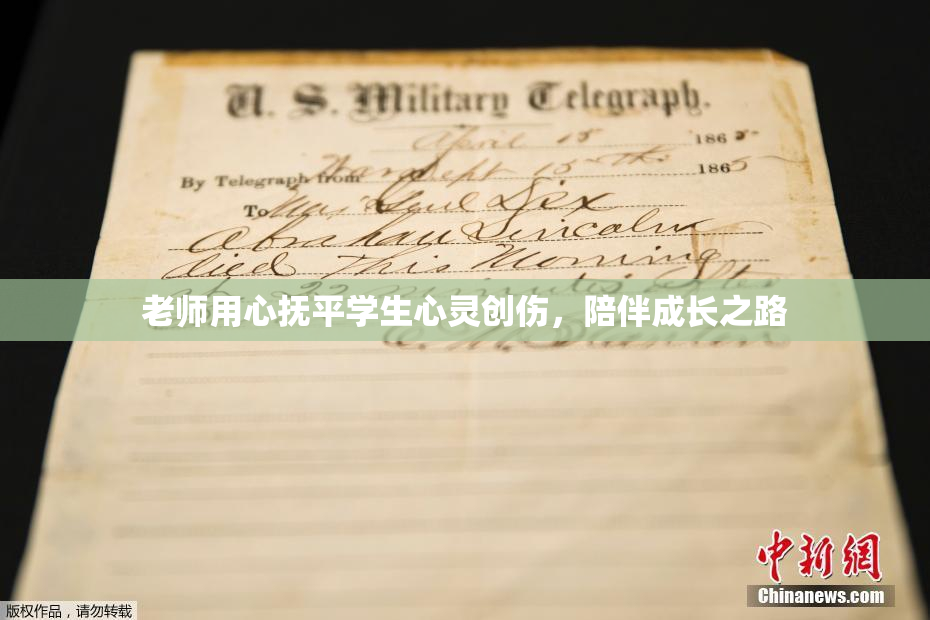 U. S. Military Telegraph.
April 15 1865
By Telegraph from War Dept 15th 1865
To Maj Genl Dix
Abraham Lincoln
died This Morning
22 minutes after
老师用心抚平学生心灵创伤，陪伴成长之路
E. M. Stanton
中新网
Chinanews.com
版权作品，请勿转载